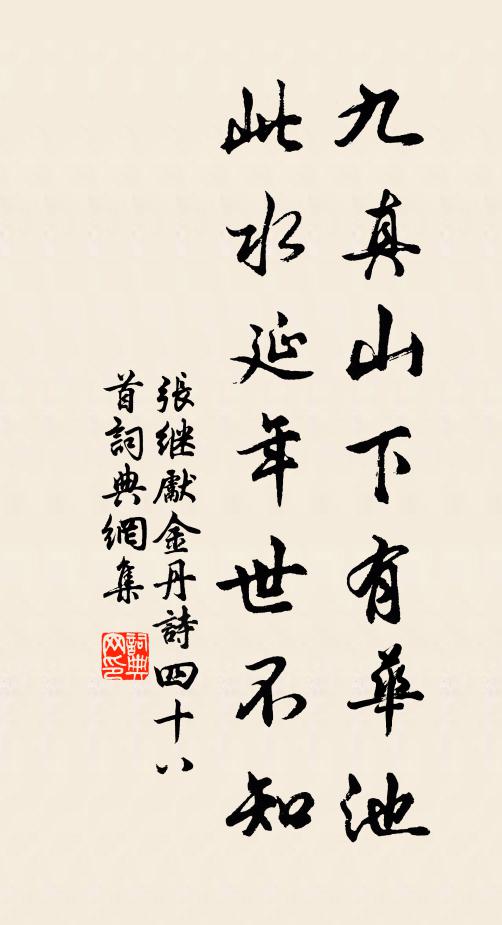 九真山下有華池
此水延年世不知
張继獻金丹詩四十八
首詞典網集
詞典网印